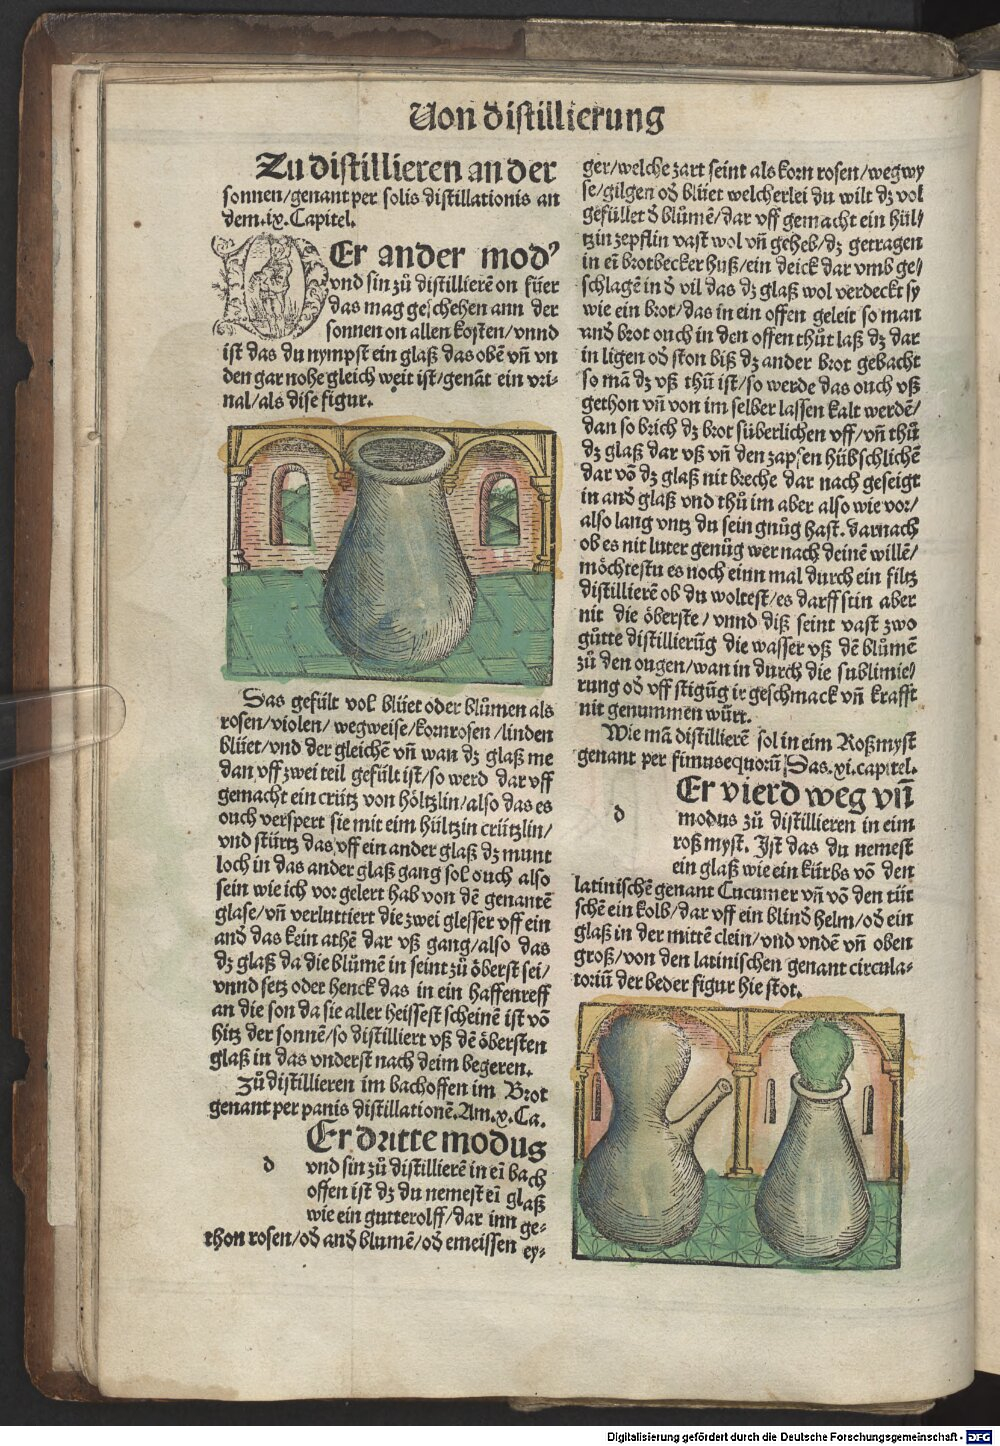 Von distillierung
Zu distillieren an der
sonnen/genant per solis distillationis an
dem.ix.Capitel.
DEr ander modꝰ
vnd sin zů distillierē on füer
das mag geschehen ann der
sonnen on allen kosten/vnnd
ist das du nympst ein glaß das obē vñ vn
den gar nohe gleich weit ist/genāt ein vri⸗
nal/als dise figur.
Das gefült vol blüet oder blůmen als
rosen/violen/wegweise/kornrosen/linden
blüet/vnd der gleichē vñ wan dz glaß me
dan vff zwei teil gefült ist/so werd dar vff
gemacht ein crütz von höltzlin/also das es
ouch verspert sie mit eim hültzin crützlin/
vnd stürtz das vff ein ander glaß dz munt
loch in das ander glaß gang sol ouch also
sein wie ich vor gelert hab von dē genantē
glase/vñ verluttiert die zwei glesser vff ein
and̄ das kein athē dar vß gang/also das
dz glaß da die blůmē in seint zů öberst sei/
vnnd setz oder henck das in ein haffenreff
an die son da sie aller heissest scheinē ist vō
hitz der sonnē/so distilliert vß dē öbersten
glaß in das vnderst nach deim begeren.
Zů distillieren im bachoffen im Brot
genant per panis distillationē.Am.x.Ca.
d Er dritte modus
vnd sin zů distillierē in eī bach
offen ist dz du nemest eī glaß
wie ein gutterolff/dar inn ge⸗
thon rosen/od̄ and̄ blumē/od̄ emeissen ey⸗
ger/welche zart seint als korn rosen/wegwy
se/gilgen od̄ blüet welcherlei du wilt dz vol
gefüllet d̄ blůmē/dar vff gemacht ein hül/
tzin zepflin vast wol vñ geheb/dz getragen
in eī brotbecker huß/ein deick dar vmb ge/
schlagē in d̄ vil das dz glaß wol verdeckt sy
wie ein brot/das in ein offen geleit so man
and̄ brot ouch in den offen thůt laß dz dar
in ligen od̄ ston biß dz ander brot gebacht
so mā dz vß thů ist/so werde das ouch vß
gethon vñ von im selber lassen kalt werdē/
dan so brich dz brot süberlichen vff/vñ thů
dz glaß dar vß vñ den zapfen hübschlichē
dar vō dz glaß nit breche dar nach geseigt
in and̄ glaß vnd thů im aber also wie vor/
also lang vntz du sein gnůg hast. darnach
ob es nit luter genůg wer nach deinē willē/
möchtestu es noch einn mal durch ein filtz
distillierē ob du woltest/es darff stin aber
nit die öberste/vnnd diß seint vast zwo
gůtte distillierūg die wasser vß dē blůmē
zů den ougen/wan in durch die sublimie/
rung od̄ vff stigūg ir geschmack vñ krafft
nit genummen würt.
Wie mā distillierē sol in eim Roßmyst
genant per fimusequorū Das.xi.capitel.
d Er vierd weg vñ
modus zů distillieren in eim
roß myst. Ist das du nemest
ein glaß wie ein kürbs vō den
latinischē genant Cucumer vñ vō den tüt
schē ein kolb/dar vff ein blind̄ helm/od̄ ein
glaß in der mittē clein/vnd vndē vñ oben
groß/von den latinischen genant circula⸗
toriū der beder figur hie stot.
Digitalisierung gefördert durch die Deutsche Forschungsgemeinschaft - DFG